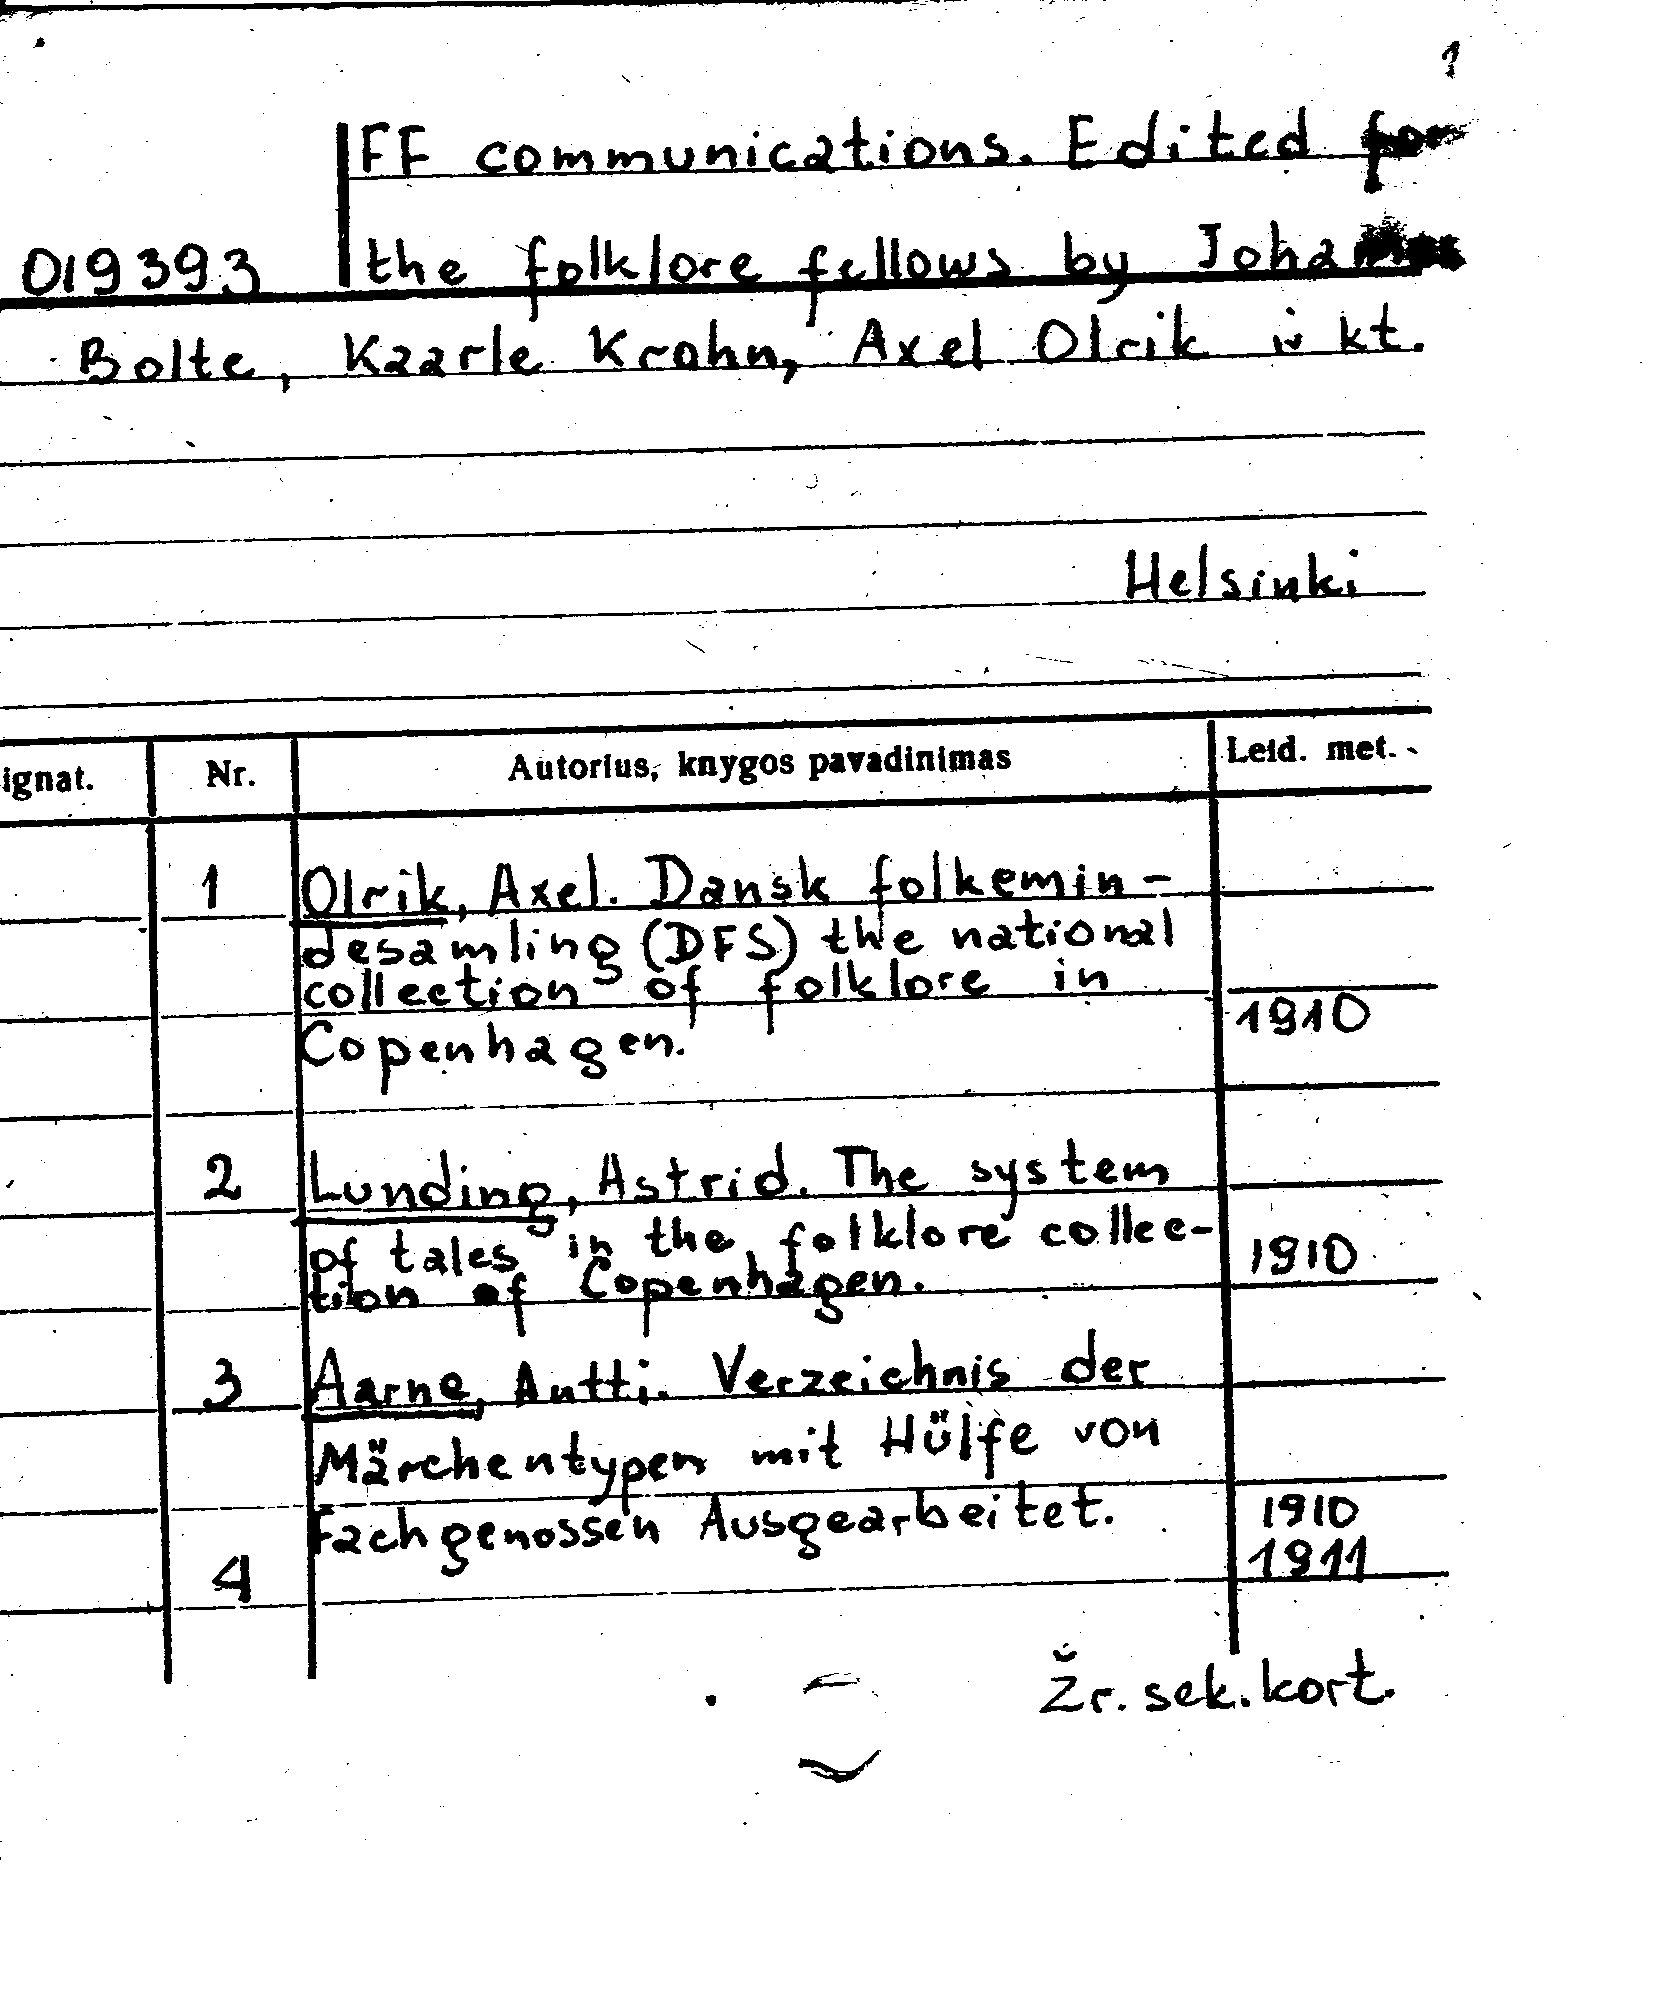 1
FF communications. Edited for
019393 the folklore fellows by Johannes
Bolte, Kaarle Krohn, Axel Olrik ir kt.
Helsinki
ignat. Nr. Autorius, knygos pavadinimas Leid. met.
1 Olrik, Axel. Dansk folkemin-
desamling (DFS) the national
collection of folklore in
Copenhagen. 1910
2 Lunding, Astrid. The system
of tales in the folklore collec-
tion of Copenhagen. 1910
3 Aarne, Antti. Verzeichnis der
Märchentypen mit Hülfe von
Fachgenossen Ausgearbeitet. 1910
4 1911
Žr. sek. kort.